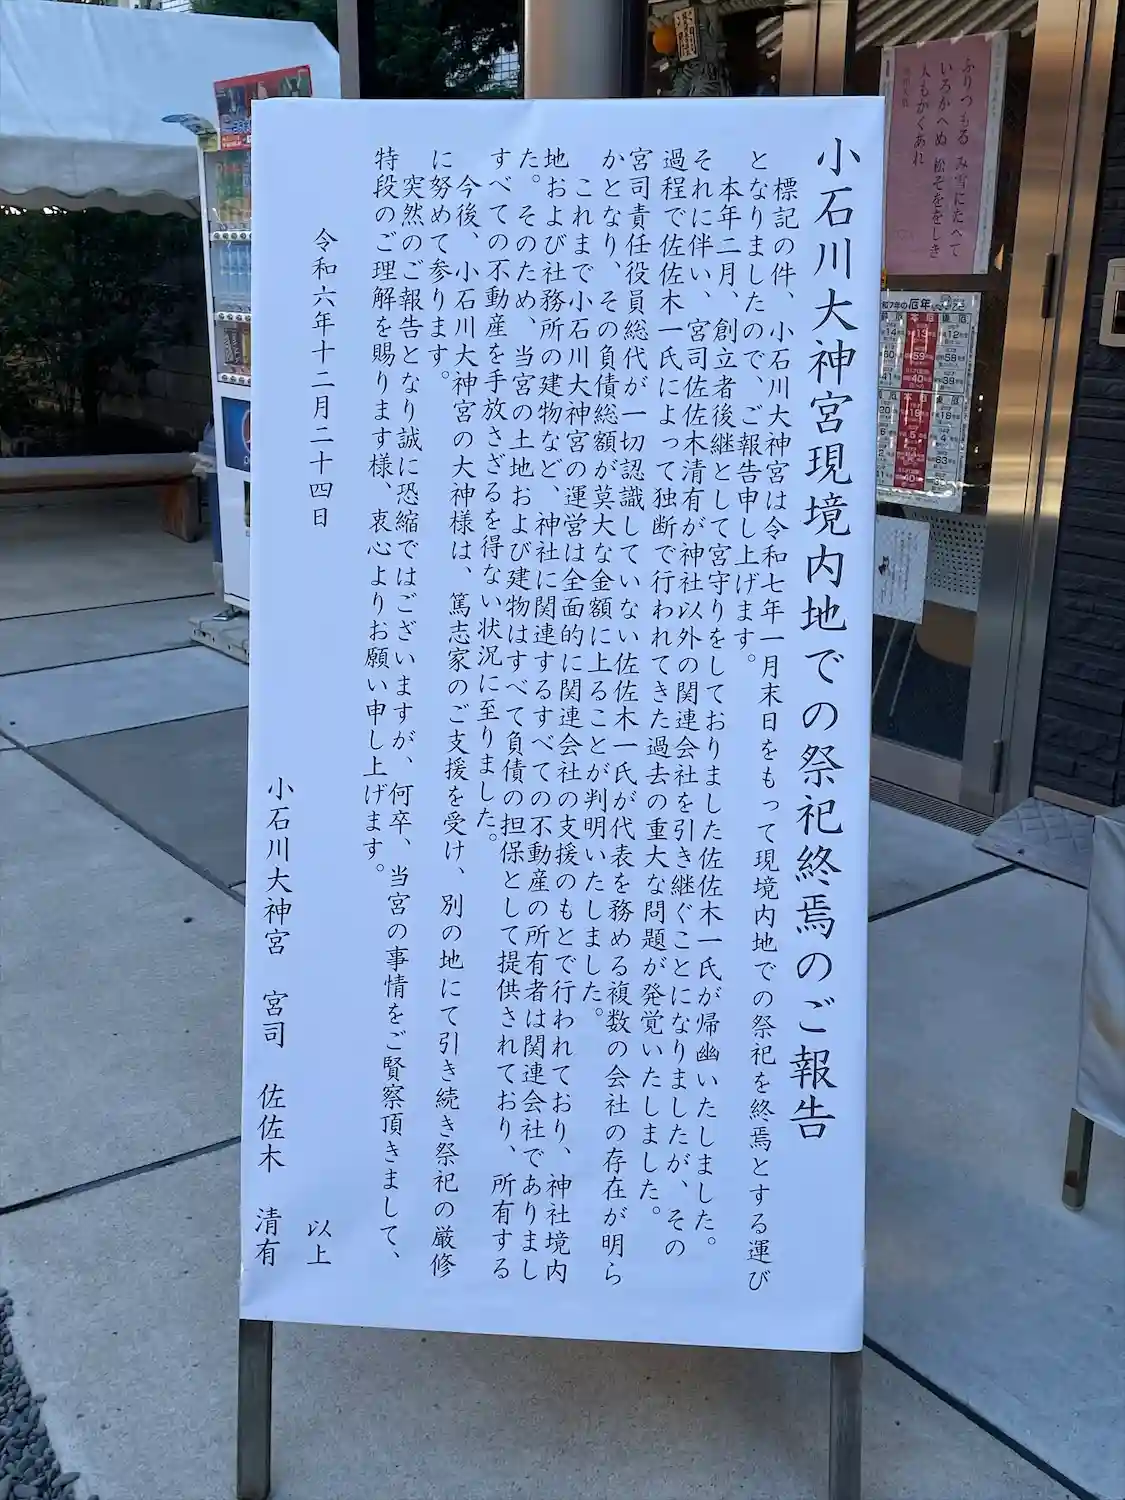 小石川大神宮現境内地での祭祀終焉のご報告
標記の件、小石川大神宮は令和七年一月末日をもって現境内地での祭祀を終焉とする運び
となりましたので、ご報告申し上げます。
本年二月、創立者後継として宮守りをしておりました佐佐木一氏が帰幽いたしました。
それに伴い、宮司佐佐木清有が神社以外の関連会社を引き継ぐことになりましたが、その
過程で佐佐木一氏によって独断で行われてきた過去の重大な問題が発覚いたしました。
宮司責任役員総代が一切認識していない佐佐木一氏が代表を務める複数の会社の存在が明ら
かとなり、その負債総額が莫大な金額に上ることが判明いたしました。
これまで小石川大神宮の運営は全面的に関連会社の支援のもとで行われており、神社境内
地および社務所の建物など、神社に関連するすべての不動産の所有者は関連会社でありまし
た。そのため、当宮の土地および建物はすべて負債の担保として提供されており、所有する
すべての不動産を手放さざるを得ない状況に至りました。
今後、小石川大神宮の大神様は、篤志家のご支援を受け、別の地にて引き続き祭祀の厳修
に努めて参ります。
突然のご報告となり誠に恐縮ではございますが、何卒、当宮の事情をご賢察頂きまして、
特段のご理解を賜ります様、衷心よりお願い申し上げます。
以上
令和六年十二月二十四日
小石川大神宮 宮司 佐佐木 清有
ふりつもる み雪にたへて
いろかへぬ 松そををしき
人もかくあれ